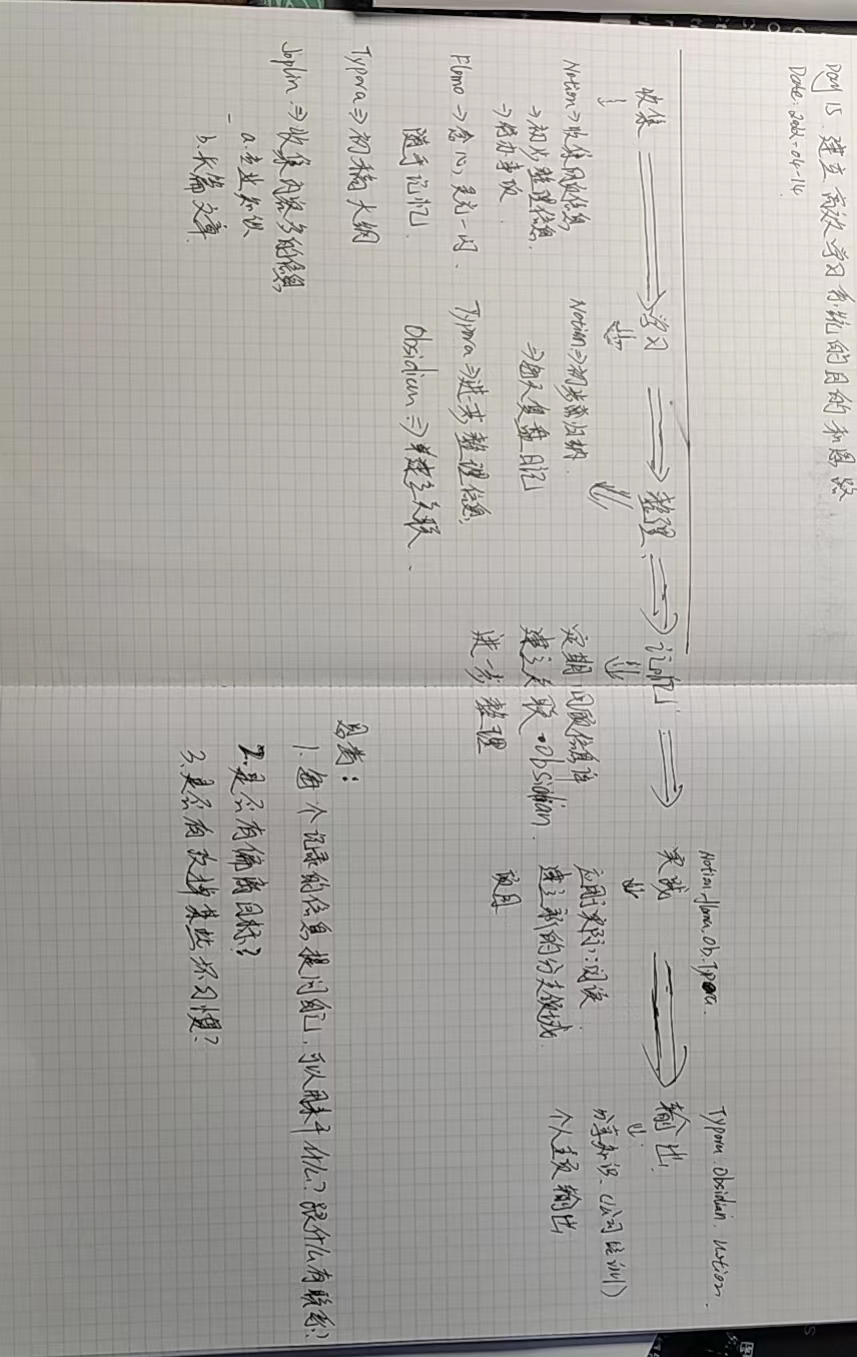 Day 15. 建立高效学习系统的目的和思路
Date: 2022-04-14
Notion. flomo. Ob. Typora.
Typora. Obsidian. notion.
收集 ⇒ 学习 ⇒ 整理 ⇒ 记忆 ⇒ 实践 ⇒ 输出
Notion ⇒ 收集网页信息
→ 初步整理信息.
→ 待办事项
Flomo → 会心, 灵光一闪.
随手记忆.
Typora ⇒ 初稿大纲
Joplin ⇒ 收集内容多的信息
a. 专业知识
b. 长篇文章
Notion ⇒ 初步归纳.
⇒ 每天复盘日记
Typora ⇒ 进一步整理信息,
Obsidian ⇒ 建立关联.
定期回顾信息
建立关联 · Obsidian.
进一步整理
应用实际: 阅读
建立新的分支领域.
项目
分享知识. (公司培训)
个人主页输出
思考:
1. 每个记录的信息提问自己, 可以用来干什么? 跟什么有联系?
2. 是否有偏离目标?
3. 是否有改掉某些坏习惯?